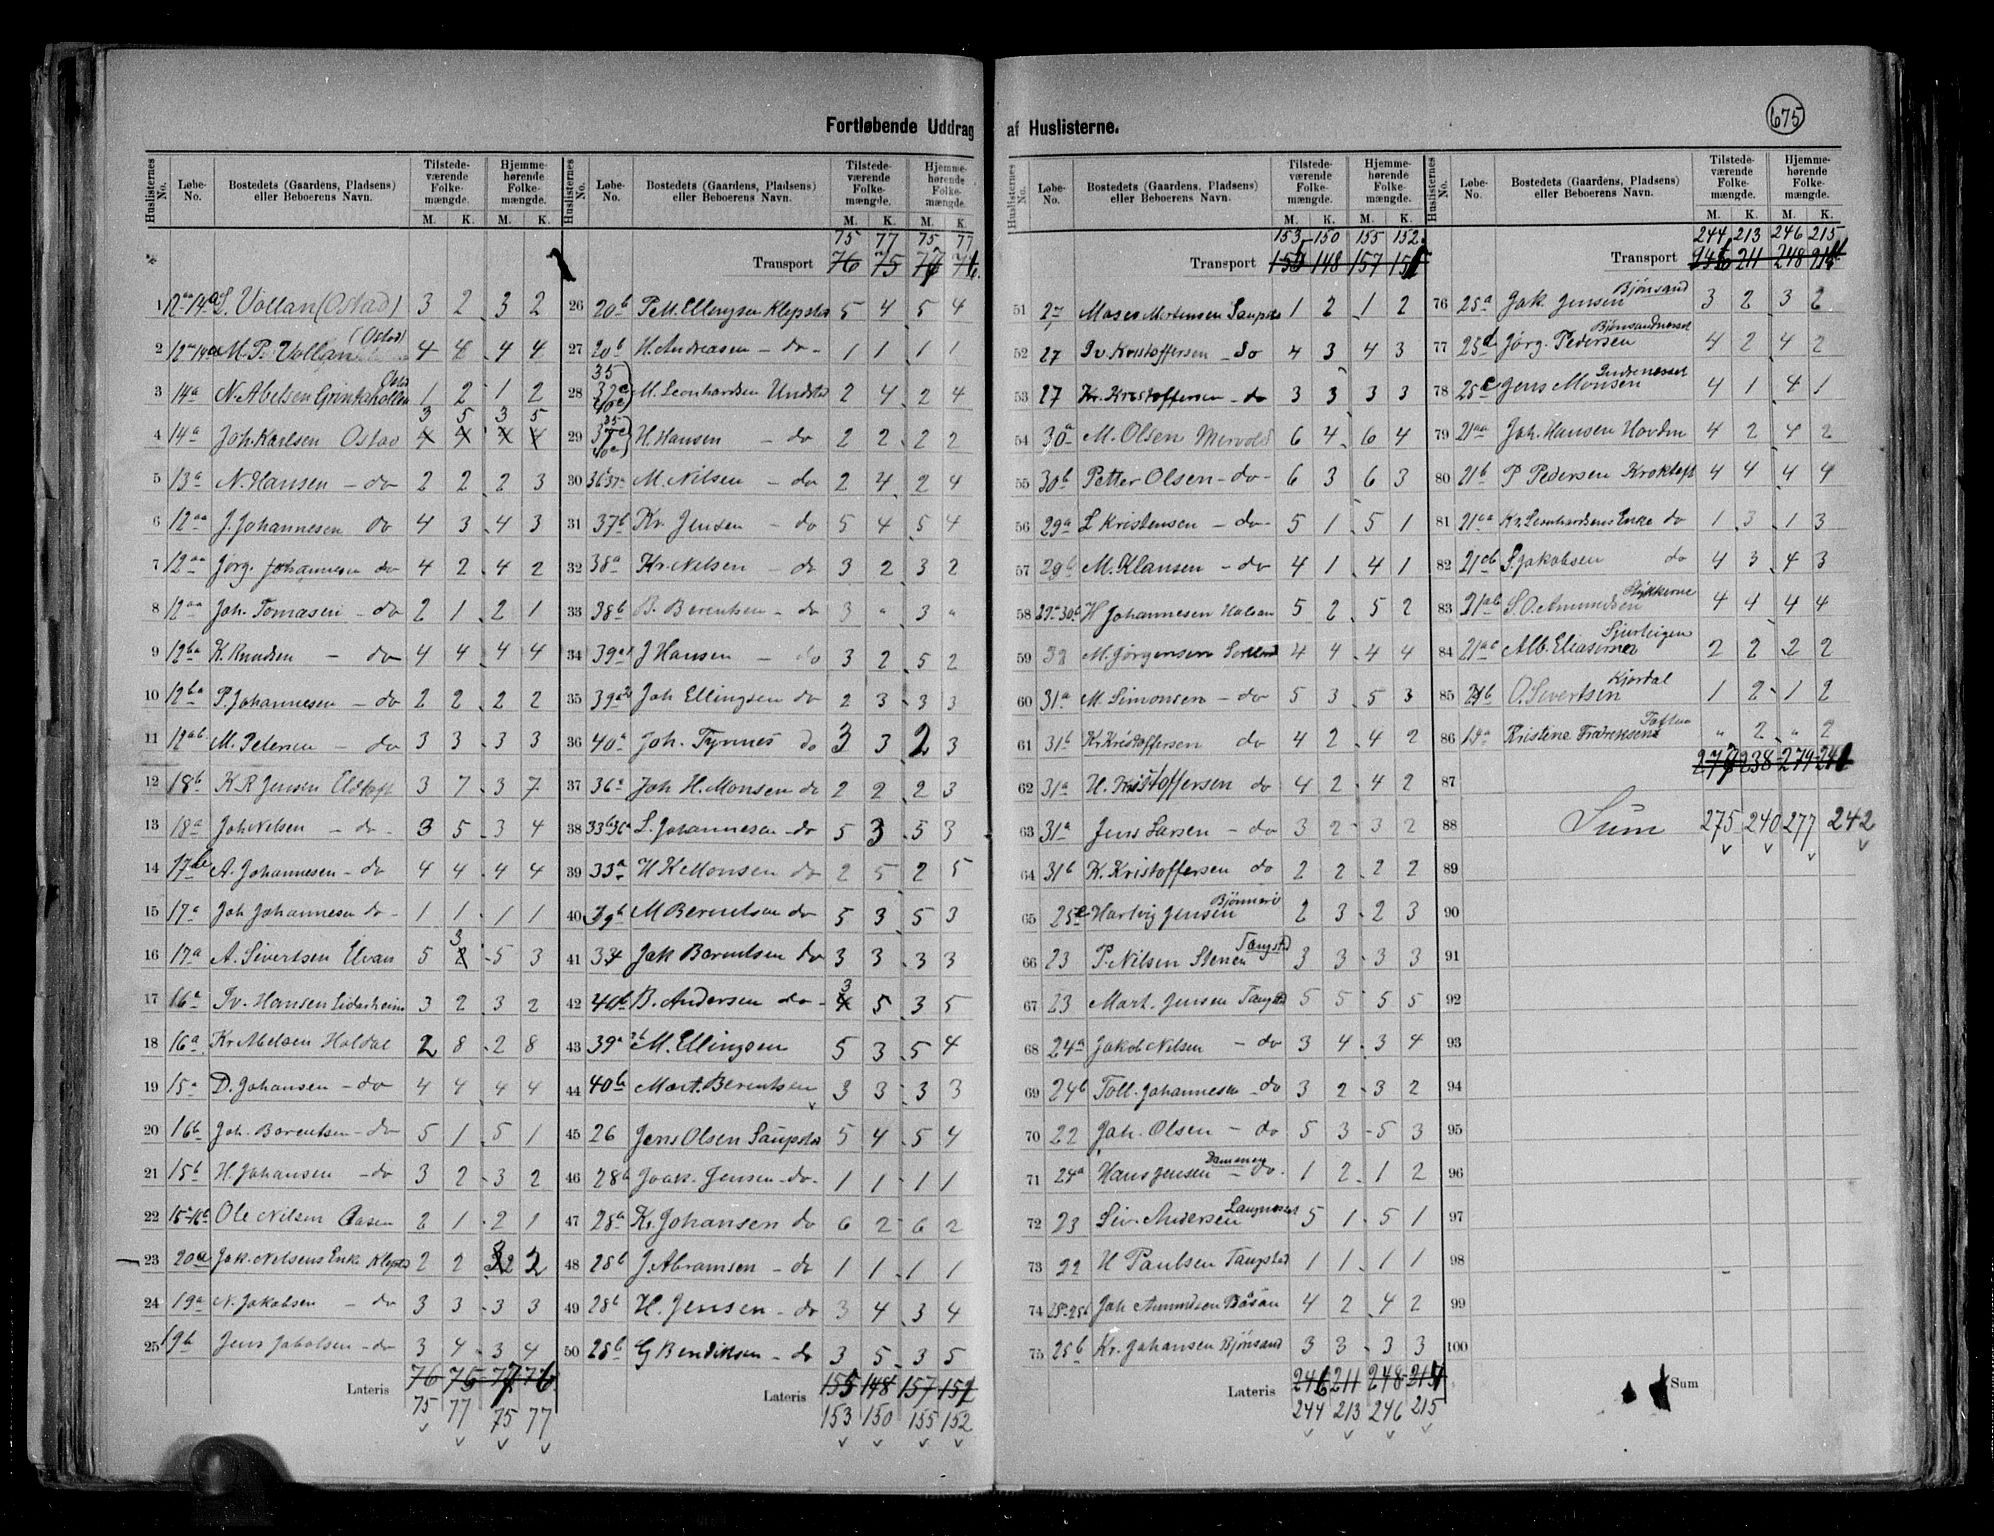 675
Fortløbende Uddrag af Huslisterne.
Huslisternes No. Løbe-No. Bostedets (Gaardens, Pladsens) eller Beboerens Navn. Tilstedeværende Folkemængde. M. K. Hjemmehørende Folkemængde. M. K.
1 12aa 14a L. Vollan (Ostad) 3 2 3 2
2 M. P. Vollan (Ostad) 4 4 4 4
3 14a N. Abelsen Ostad 1 2 1 2
4 14a Joh. Karlsen Ostad 3 5 3 5
5 13a N. Hansen - do 2 2 2 3
6 12aa J. Johannesen do 4 3 4 3
7 12aa Jørg. Johannesen do 4 2 4 2
8 12aa Joh. Tomasen - do 2 1 2 1
9 12ba K. Knudsen - do 4 4 4 4
10 12ba P. Johannesen - do 2 2 2 2
11 12ab M. Petersen - do 3 3 3 3
12 18b K R Jensen 3 7 3 7
13 18a Joh Nilsen - do - 3 5 3 4
14 A. Johannesen - do 4 4 4 4
15 17a Joh Johannesen do - 1 1 1 1
16 17a A. Sivertsen Elvan 5 3 5 3
17 16a Iv. Hansen 3 2 3 2
18 16a Kr. Holdal 2 8 2 8
19 15a D. Johansen - do 4 4 4 4
20 16b Joh. Berentsen - do 5 1 5 1
21 15b H. Johansen - do 3 2 3 2
22 Ole Nilsen Aasen 2 1 2 1
23 20a Jak. Nilsens Enke 2 2 2 2
24 19a N. Jakobsen - do 3 3 3 3
25 19b Jens Jakobsen - do 3 4 3 4
Lateris 76 75 77 76
75 77 75 77
Huslisternes No. Løbe-No. Bostedets (Gaardens, Pladsens) eller Beboerens Navn. Tilstedeværende Folkemængde. M. K. Hjemmehørende Folkemængde. M. K.
75 77 75 77
Transport 76 75 77 76
26 20b P. M. Ellingsen 5 4 5 4
27 20b H. Andreasen - do - 1 1 1 1
28 M. Leonhardsen Undstad 2 4 2 4
29 H. Hansen - do 2 2 2 2
30 M. Nilsen - do 2 4 2 4
31 37b Kr. Jensen - do 5 4 5 4
32 38a Kr. Nilsen - do 3 2 3 2
33 38b B. Berentsen - do 3 " 3 "
34 J Hansen - do 3 2 5 2
35 Joh Ellingsen do 2 3 3 3
36 40a Joh. Tynnes do 3 3 2 3
37 36a Joh H. Monsen do 2 2 2 3
38 33b 36a L. Johannesen - do 5 3 5 3
39 33a H K Monsen do 2 5 2 5
40 39b M Berentsen do 5 3 5 3
41 34 Jak Berentsen do 3 3 3 3
42 40b B. Andersen do - 3 5 3 5
43 M. Ellingsen 5 3 5 4
44 40b Mart. Berentsen 3 3 3 3
45 26 Jens Olsen Saupstad 5 4 5 4
46 28b Joak. Jensen - do - 1 1 1 1
47 28a Kr. Johansen do 6 2 6 2
48 28b J. Abramsen - do 1 1 1 1
49 28b H. Jensen - do 3 4 3 4
50 28b G Bendiksen - do 3 5 3 5
Lateris 155 148 157 151
153 150 155 152
Huslisternes No. Løbe-No. Bostedets (Gaardens, Pladsens) eller Beboerens Navn. Tilstedeværende Folkemængde. M. K. Hjemmehørende Folkemængde. M. K.
153 150 155 152
Transport 155 148 157 151
51 27 Moses Mortensen Saupstad 1 2 1 2
52 27 Iv. Kristoffersen - do 4 3 4 3
53 27 Kr. Kristoffersen - do 3 3 3 3
54 30a M. Olsen 6 4 6 4
55 30b Petter Olsen - do - 6 3 6 3
56 29a L Kristensen - do - 5 1 5 1
57 29b M. Klausen - do 4 1 4 1
58 H Johannesen 5 2 5 2
59 32 M. Jørgensen 4 4 4 4
60 31a M. Simonsen - do 5 3 5 3
61 31b Kr. Kristoffersen do 4 2 4 2
62 31a H. Kristoffersen do 4 2 4 2
63 31a Jens Larsen - do 3 2 3 2
64 31b K. Kristoffersen do 2 2 2 2
65 Hartvig Jensen 2 3 2 3
66 23 P. Nilsen Stenen Tangstad 3 3 3 3
67 23 Mart. Jensen Tangstad 5 5 5 5
68 24a Jakob Nilsen - do 3 4 3 4
69 24b Toll. Johannesen - do 3 2 3 2
70 22 Joh. Olsen - do 5 3 5 3
71 24a Hans Jensen - do. 1 2 1 2
72 23 Siv. Andersen 5 1 5 1
73 22 H Paulsen Tangstad 1 1 1 1
74 Joh Amundsen 4 2 4 2
75 25b Kr. Johansen Bjønsand 3 3 3 3
Lateris 246 211 248 214
244 213 246 215
Huslisternes No. Løbe-No. Bostedets (Gaardens, Pladsens) eller Beboerens Navn. Tilstedeværende Folkemængde. M. K. Hjemmehørende Folkemængde. M. K.
244 213 246 215
Transport 246 211 248 214
76 25a Jak. Jensen Bjønsand 3 2 3 2
77 25d Jørg. Pedersen Bjønsandnesset 4 2 4 2
78 25c Jens Monsen 4 1 4 1
79 21aa Joh. Hansen Hovden 4 2 4 2
80 21b P Pedersen 4 4 4 4
81 21aa Kr. Leonhardsens Enke do 1 3 1 3
82 21ab S Jakobsen do 4 3 4 3
83 21ab S. O. Amundsen 4 4 4 4
84 21ac Alb. 2 2 2 2
85 O. Sivertsen 1 2 1 2
86 19a Kristine " 2 " 2
277 238 279 241
87
88 Sum 275 240 277 242
89
90
91
92
93
94
95
96
97
98
99
100
Sum